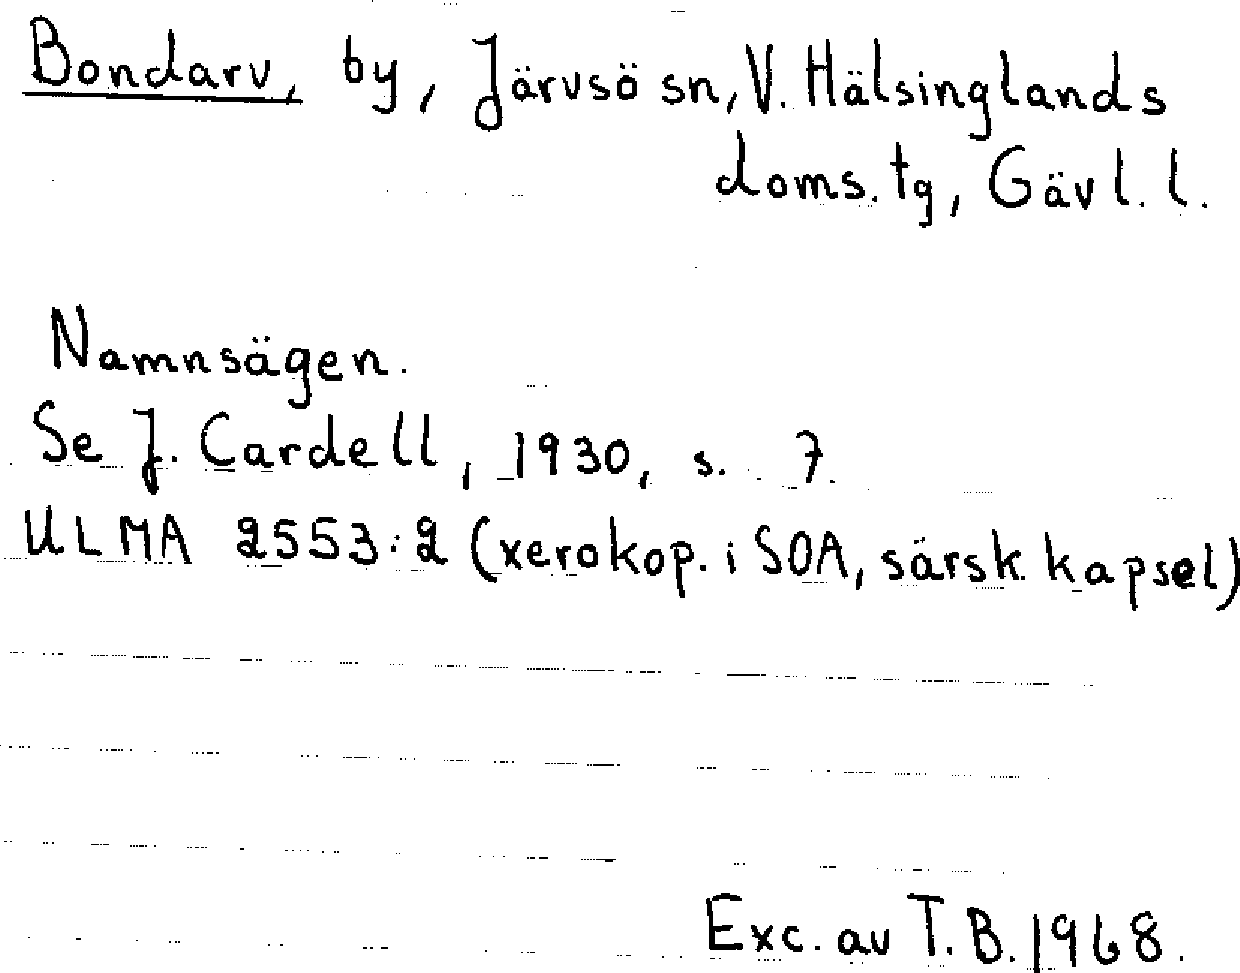 Bondarv, by, Järvsö sn, V. Hälsinglands
doms. tg, Gävl. l.
Namnsägen.
Se J. Cardell, 1930, s. 7.
ULMA 2553:2 (xerokop. i SOA, särsk. kapsel)
Exc. av T.B. 1968.